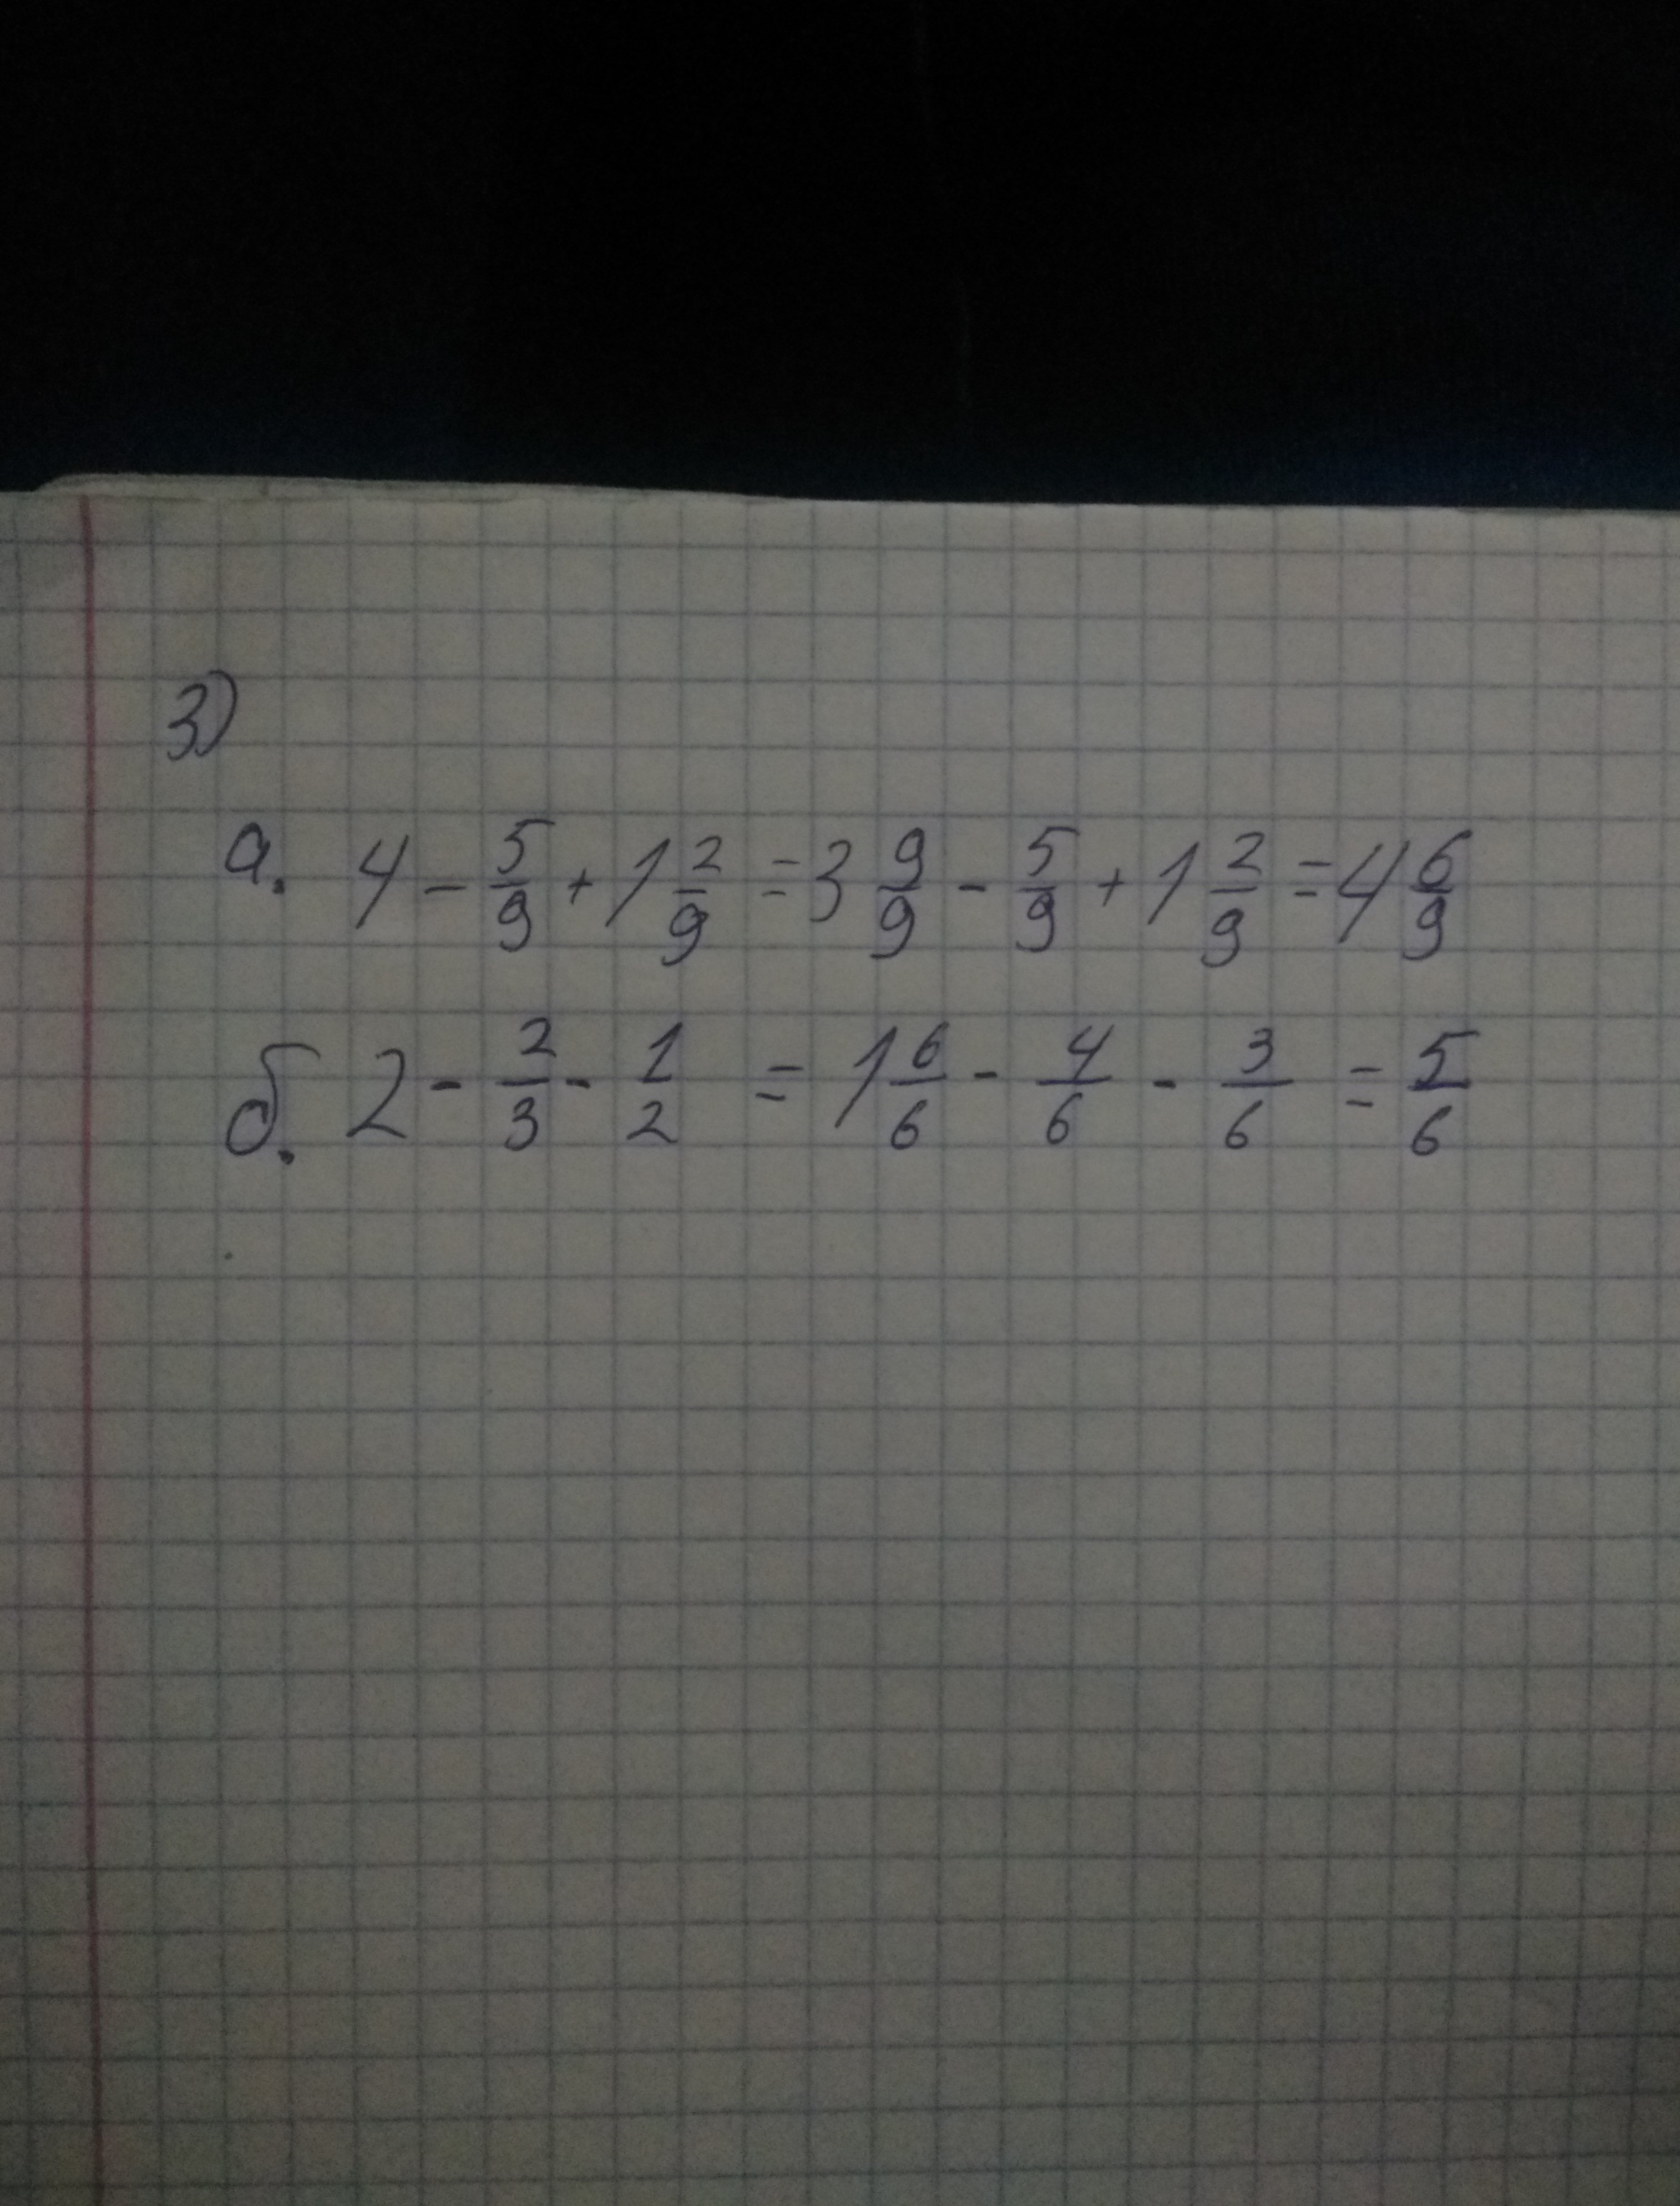 3)
а. 4 - 5/9 + 1 2/9 = 3 9/9 - 5/9 + 1 2/9 = 4 6/9
б. 2 - 2/3 - 1/2 = 1 6/6 - 4/6 - 3/6 = 5/6